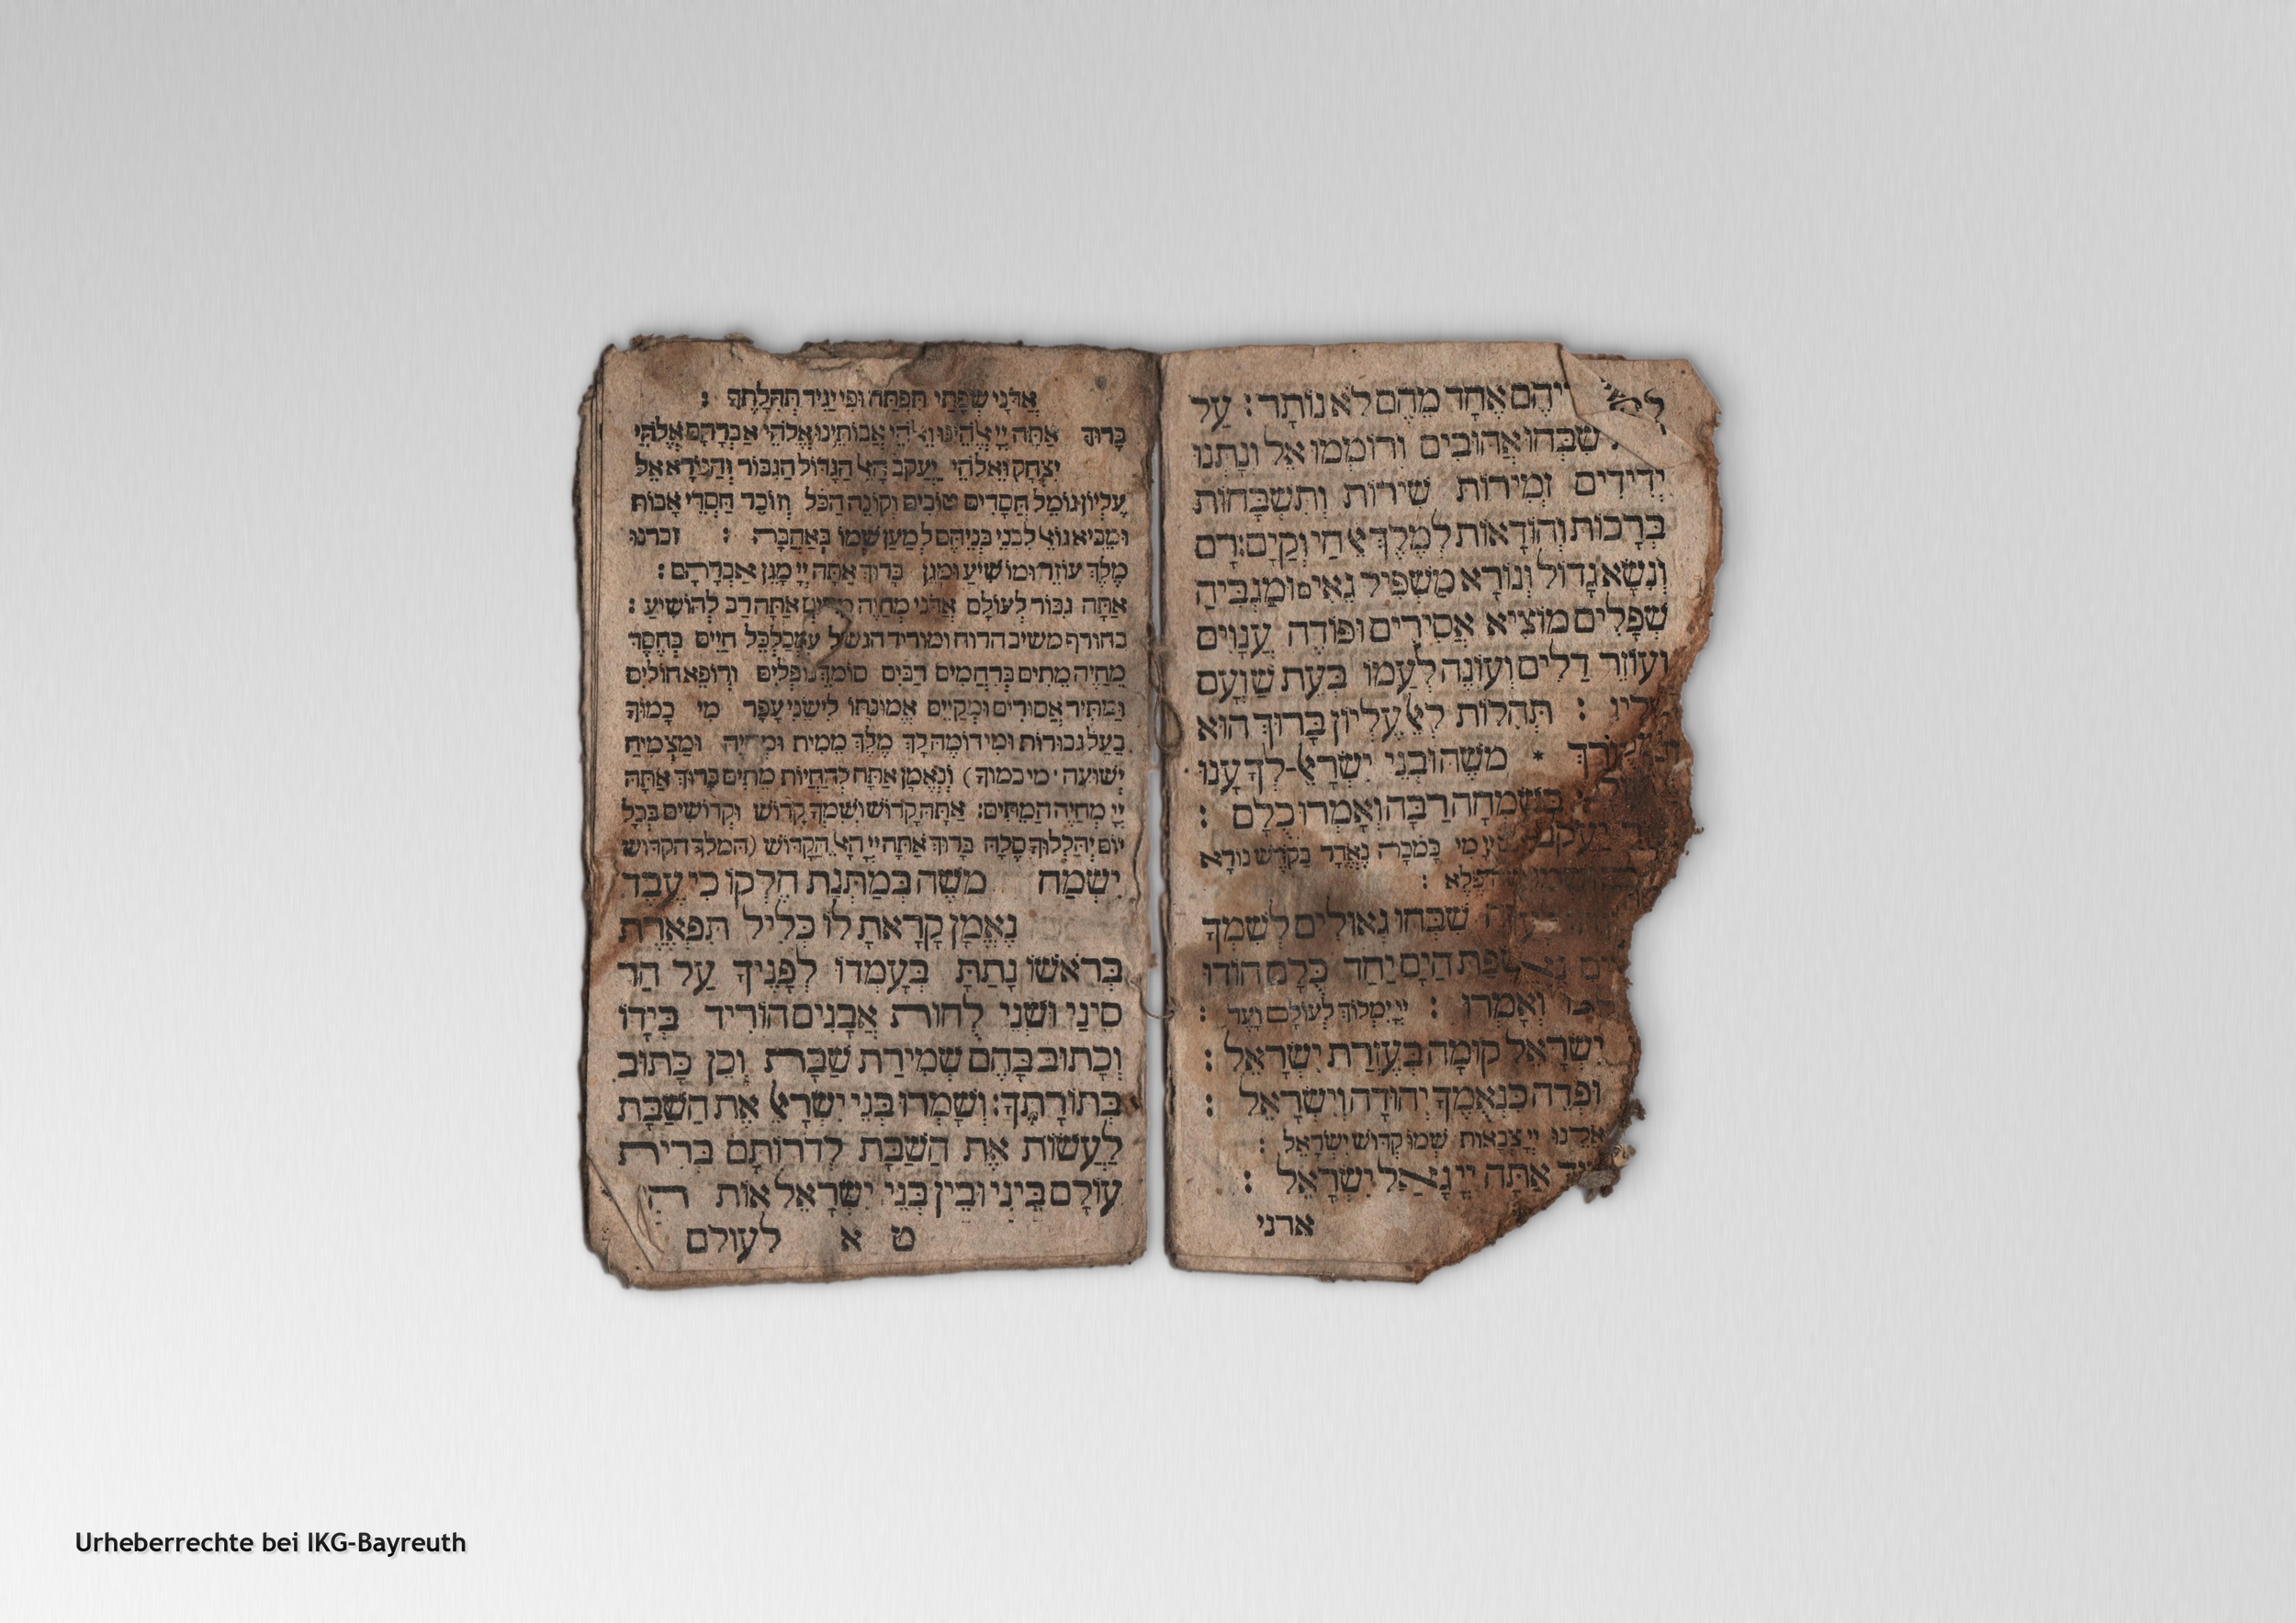 אחד מהם לא נותר : על
שבחו אהובים ורוממו אל ונתנו
ידידים זמירות שירות ותשבחות
ברכות והודאות למלך אל חי וקים : רם
ונשא גדול ונורא משפיל גאים ומגביה
שפלים מוציא אסירים ופודה ענוים
ועוזר דלים ועונה לעמו בעת שועם
: תהלות לאל עליון ברוך הוא
* משה ובני ישראל לך ענו
בשמחה רבה ואמרו כלם :
מי כמכה נאדר בקדש נורא
פלא :
שבחו גאולים לשמך
שפת הים יחד כלם הודו
ואמרו : יי ימלוך לעולם ועד :
ישראל קומה בעזרת ישראל :
ופדה כנאמך יהודה וישראל :
יי צבאות שמו קדוש ישראל :
אתה יי גאל ישראל :
אדני
אדני שפתי תפתח ופי יגיד תהלתך :
ברוך אתה יי אלהינו ואלהי אבותינו אלהי אברהם אלהי
יצחק ואלהי יעקב האל הגדול הגבור והנורא אל
עליון גומל חסדים טובים וקונה הכל וזוכר חסדי אבות
ומביא גואל לבני בניהם למען שמו באהבה : זכרנו
מלך עוזר ומושיע ומגן ברוך אתה יי מגן אברהם :
אתה גבור לעולם אדני מחיה מתים אתה רב להושיע :
בחורף משיב הרוח ומוריד הגשם מכלכל חיים בחסד
מחיה מתים ברחמים רבים סומך נופלים ורופא חולים
ומתיר אסורים ומקיים אמונתו לישני עפר מי כמוך
בעל גבורות ומי דומה לך מלך ממית ומחיה ומצמיח
ישועה · מי כמוך) ונאמן אתה להחיות מתים ברוך אתה
יי מחיה המתים : אתה קדוש ושמך קדוש וקדושים בכל
יום יהללוך סלה ברוך אתה יי האל הקדוש (המלך הקדוש
ישמח משה במתנת חלקו כי עבד
נאמן קראת לו כליל תפארת
בראשו נתת בעמדו לפניך על הר
סיני ושני לחות אבנים הוריד בידו
וכתוב בהם שמירת שבת וכן כתוב
בתורתך : ושמרו בני ישראל את השבת
לעשות את השבת לדרותם ברית
עולם ביני ובין בני ישראל אות
ט א לעולם
Urheberrechte bei IKG-Bayreuth